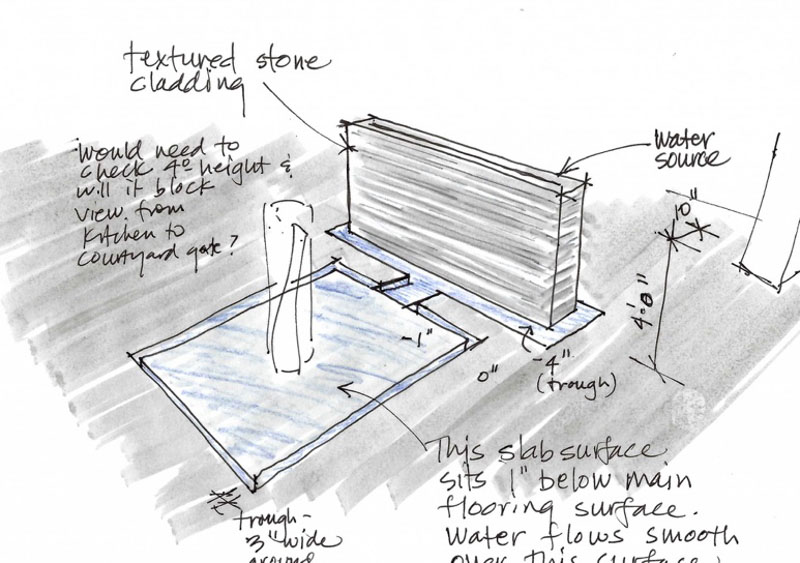 textured stone
cladding
Would need to
check 4º height &
will it block
view from
kitchen to
courtyard gate?
water
source
10"
4'-0"
-1"
0"
-4"
(trough)
This slab surface
sits 1" below main
flooring surface.
Water flows smooth
over this surface
trough-
3" wide
around